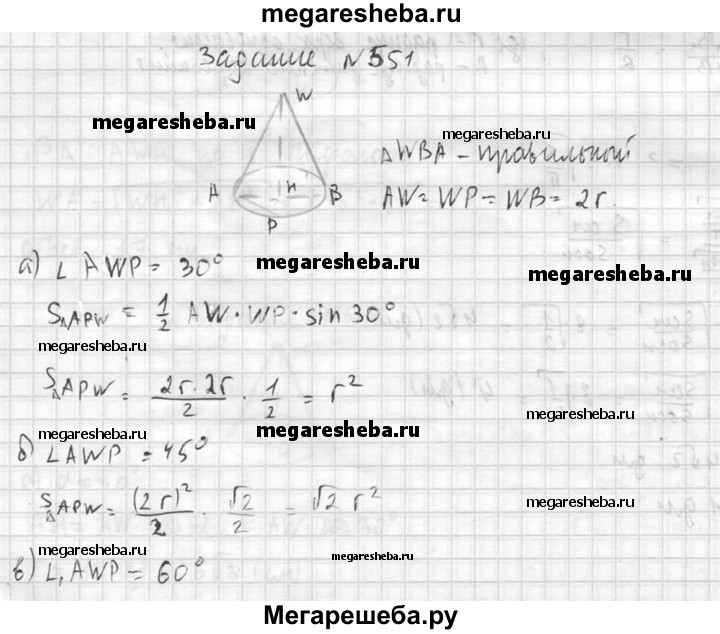 megaresheba.ru
Задание №551
W
megaresheba.ru
megaresheba.ru
△WBA - правильной
A
r
B
AW = WP = WB = 2r.
P
а) ∠AWP = 30°
megaresheba.ru
megaresheba.ru
S△APW = 1/2 AW · WP · sin 30°
megaresheba.ru
S△APW = 2r·2r/2 · 1/2 = r²
megaresheba.ru
megaresheba.ru
megaresheba.ru
б) ∠AWP = 45°
S△APW = (2r)²/2 · √2/2 = √2 r²
megaresheba.ru
megaresheba.ru
megaresheba.ru
в) ∠AWP = 60°
Мегарешеба.ру